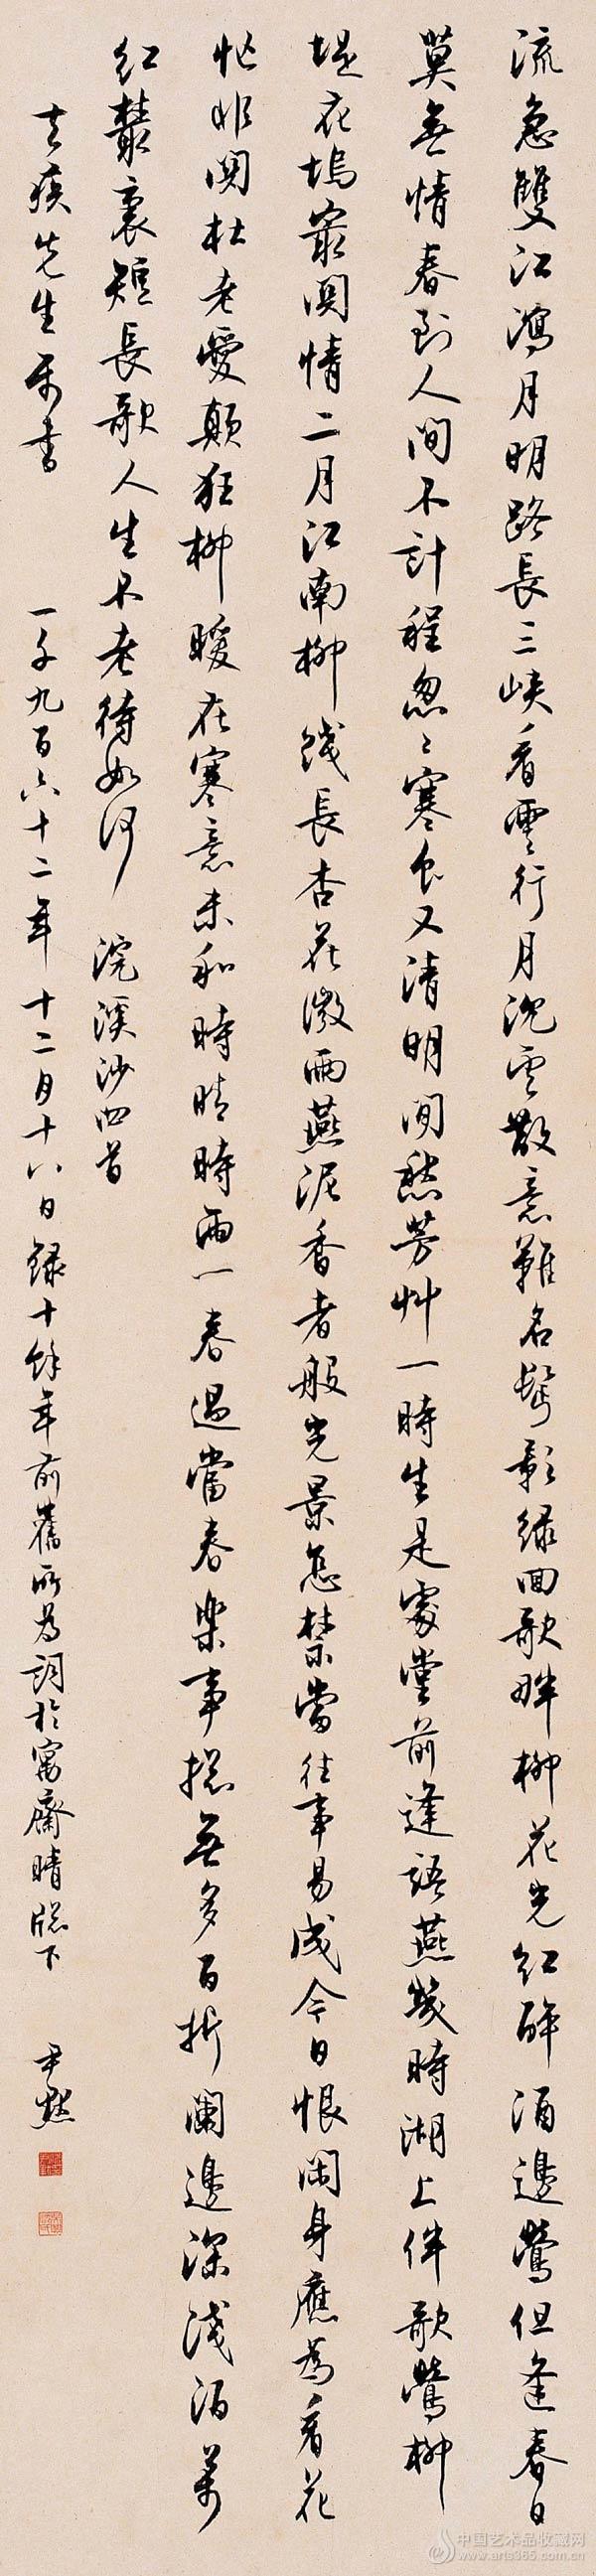 流急雙江瀉月明路長三峽看雲行月沈雲散意難名鬢影綠回歌畔柳花光紅醉酒邊鶯但逢春日
莫無情春到人間不計程忽忽寒食又清明閒愁芳艸一時生是處堂前逢語燕幾時湖上伴歌鶯柳
堤花塢最關情二月江南柳綫長杏花微雨燕泥香者般光景怎禁當往事易成今日恨閑身應為看花
忙非關杜老愛顛狂柳暖花寒意未和時晴時雨一春過當春樂事摠無多百折瀾邊深淺酒萬
紅叢裏短長歌人生不老待如何 浣溪沙四首
去疾先生屬書 一千九百六十二年十二月十八日錄十餘年前舊所為詞於寓齋晴牕下 尹默
中国艺术品收藏网
www.arts365.com.cn